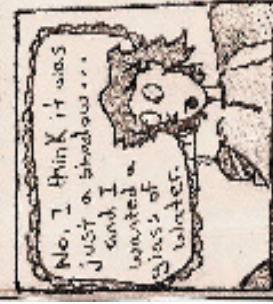 No, I think it was
just a shadow...
and I
wanted a
glass of
water.